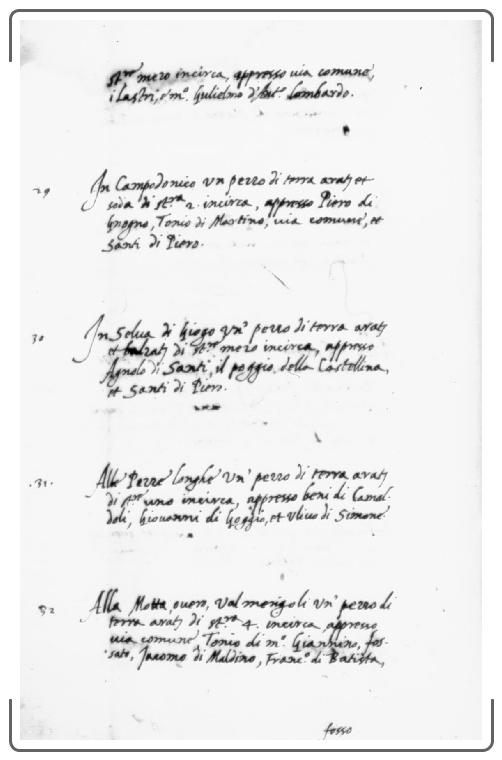 st.re mezo incirca, appresso via comune,
i Lastri, e m.o Gulielmo d'Ant.o Lombardo.
29 In Campodonico un pezzo di terra arat; et
soda di st.ra 2. incirca, appresso Piero di
Gnogno, Tonio di Martino, via comune, et
Santi di Piero.
30 In Selva di Giogo un' pezzo di terra arat;
et balzat; di st.re mezo incirca, appresso
Agnolo di Santi, il poggio della Castellina,
et Santi di Piero.
31. Alle Pezze longhe un' pezzo di terra arat;
di st.re uno incirca, appresso beni di Camal-
doli, Giovanni di Goggio, et Ulivo di Simone
32 Alla Motta, overo, Val merigoli un' pezzo di
terra arat; di st.ra 4. incirca, appresso
via comune Tonio di m.o Giannino, fos-
sato, Jacomo di Maldino, Franc.o di Batista,
fosso